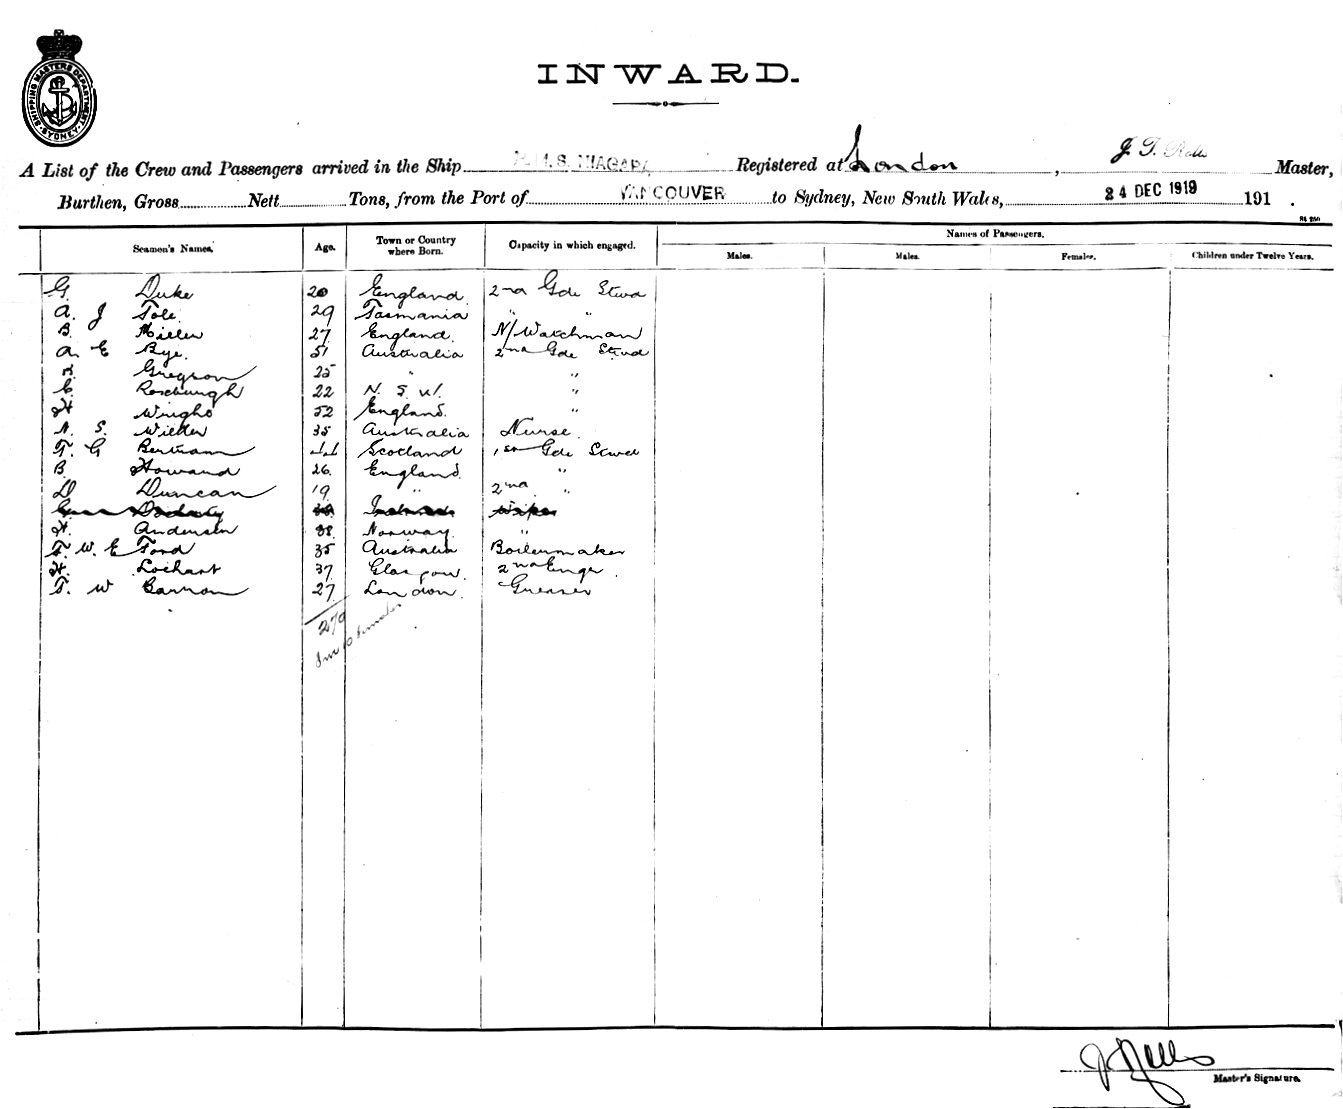 SHIPPING MASTERS DEPARTMENT · SYDNEY ·
INWARD.
A List of the Crew and Passengers arrived in the Ship R.M.S. NIAGARA Registered at London, J. T. Rolls Master,
Burthen, Gross Nett Tons, from the Port of VANCOUVER to Sydney, New South Wales, 24 DEC 1919 191 .
Names of Passengers.
Seamen's Names. Age. Town or Country where Born. Capacity in which engaged. Males. Males. Females. Children under Twelve Years.
G. Duke 20 England 2nd Gde Stwd
A. J Tole 29 Tasmania " "
B. Miller 27 England N/Watchman
A E Bye. 51 Australia 2nd Gde Stwd
Gregson 25 " "
C. Roseburgh 22 N. S. W. "
H Wright 52 England. "
N. S. Wilder 35 Australia Nurse
F. G Bertram 44 Scotland 1st Gde Stwd
B. Howard 26 England "
D Duncan 19 " 2nd "
Wiper
H. Andersen 38 Norway. "
F. W. E Ford 35 Australia Boilermaker
H. Lochart 37 Glasgow. 2nd Enger.
F. W Barron 27 London. Greaser
270
10 females
Master's Signature.